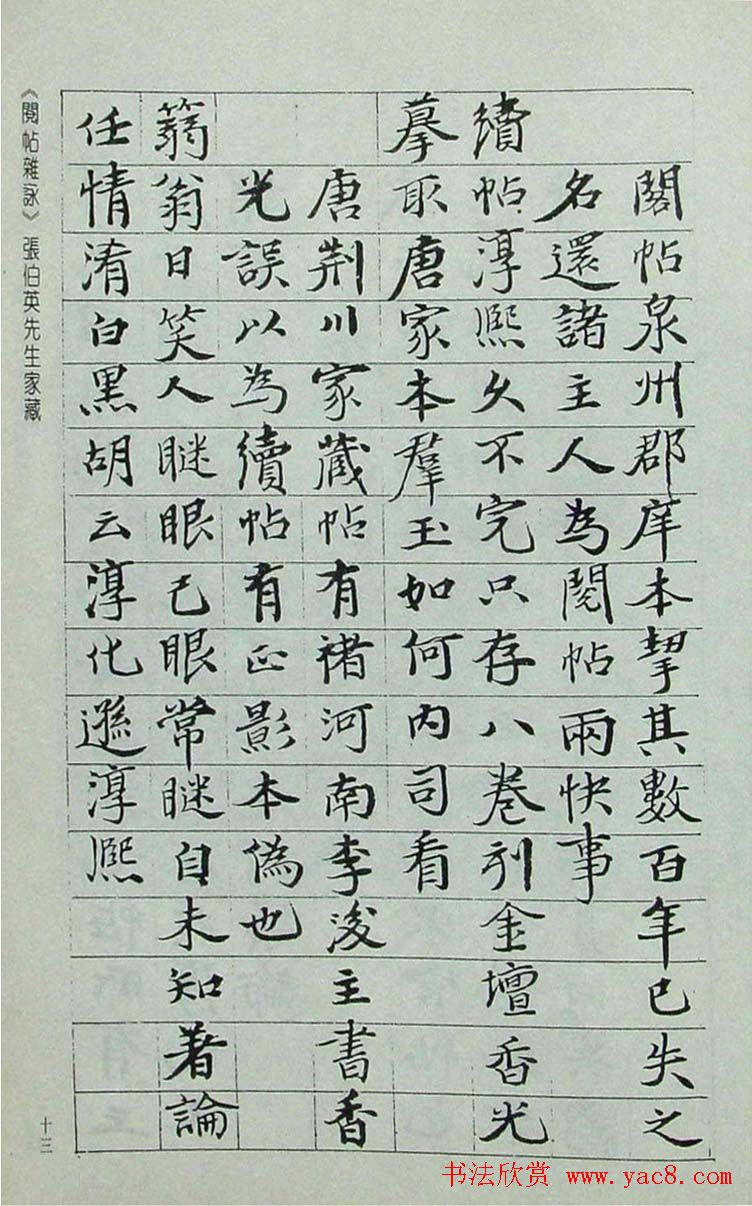 閣帖泉州郡庠本挈其數百年已失之
名還諸主人為閱帖兩快事
續帖淳熙久不完只存八卷刋金壇香光
摹取唐家本羣玉如何內司看
唐荊川家藏帖有褚河南李後主書香
光誤以為續帖有正影本偽也
篛翁日笑人瞇眼己眼常瞇自未知著論
任情淆白黑胡云淳化遜淳熙
《閱帖雜詠》張伯英先生家藏
十三
书法欣赏 www.yac8.com